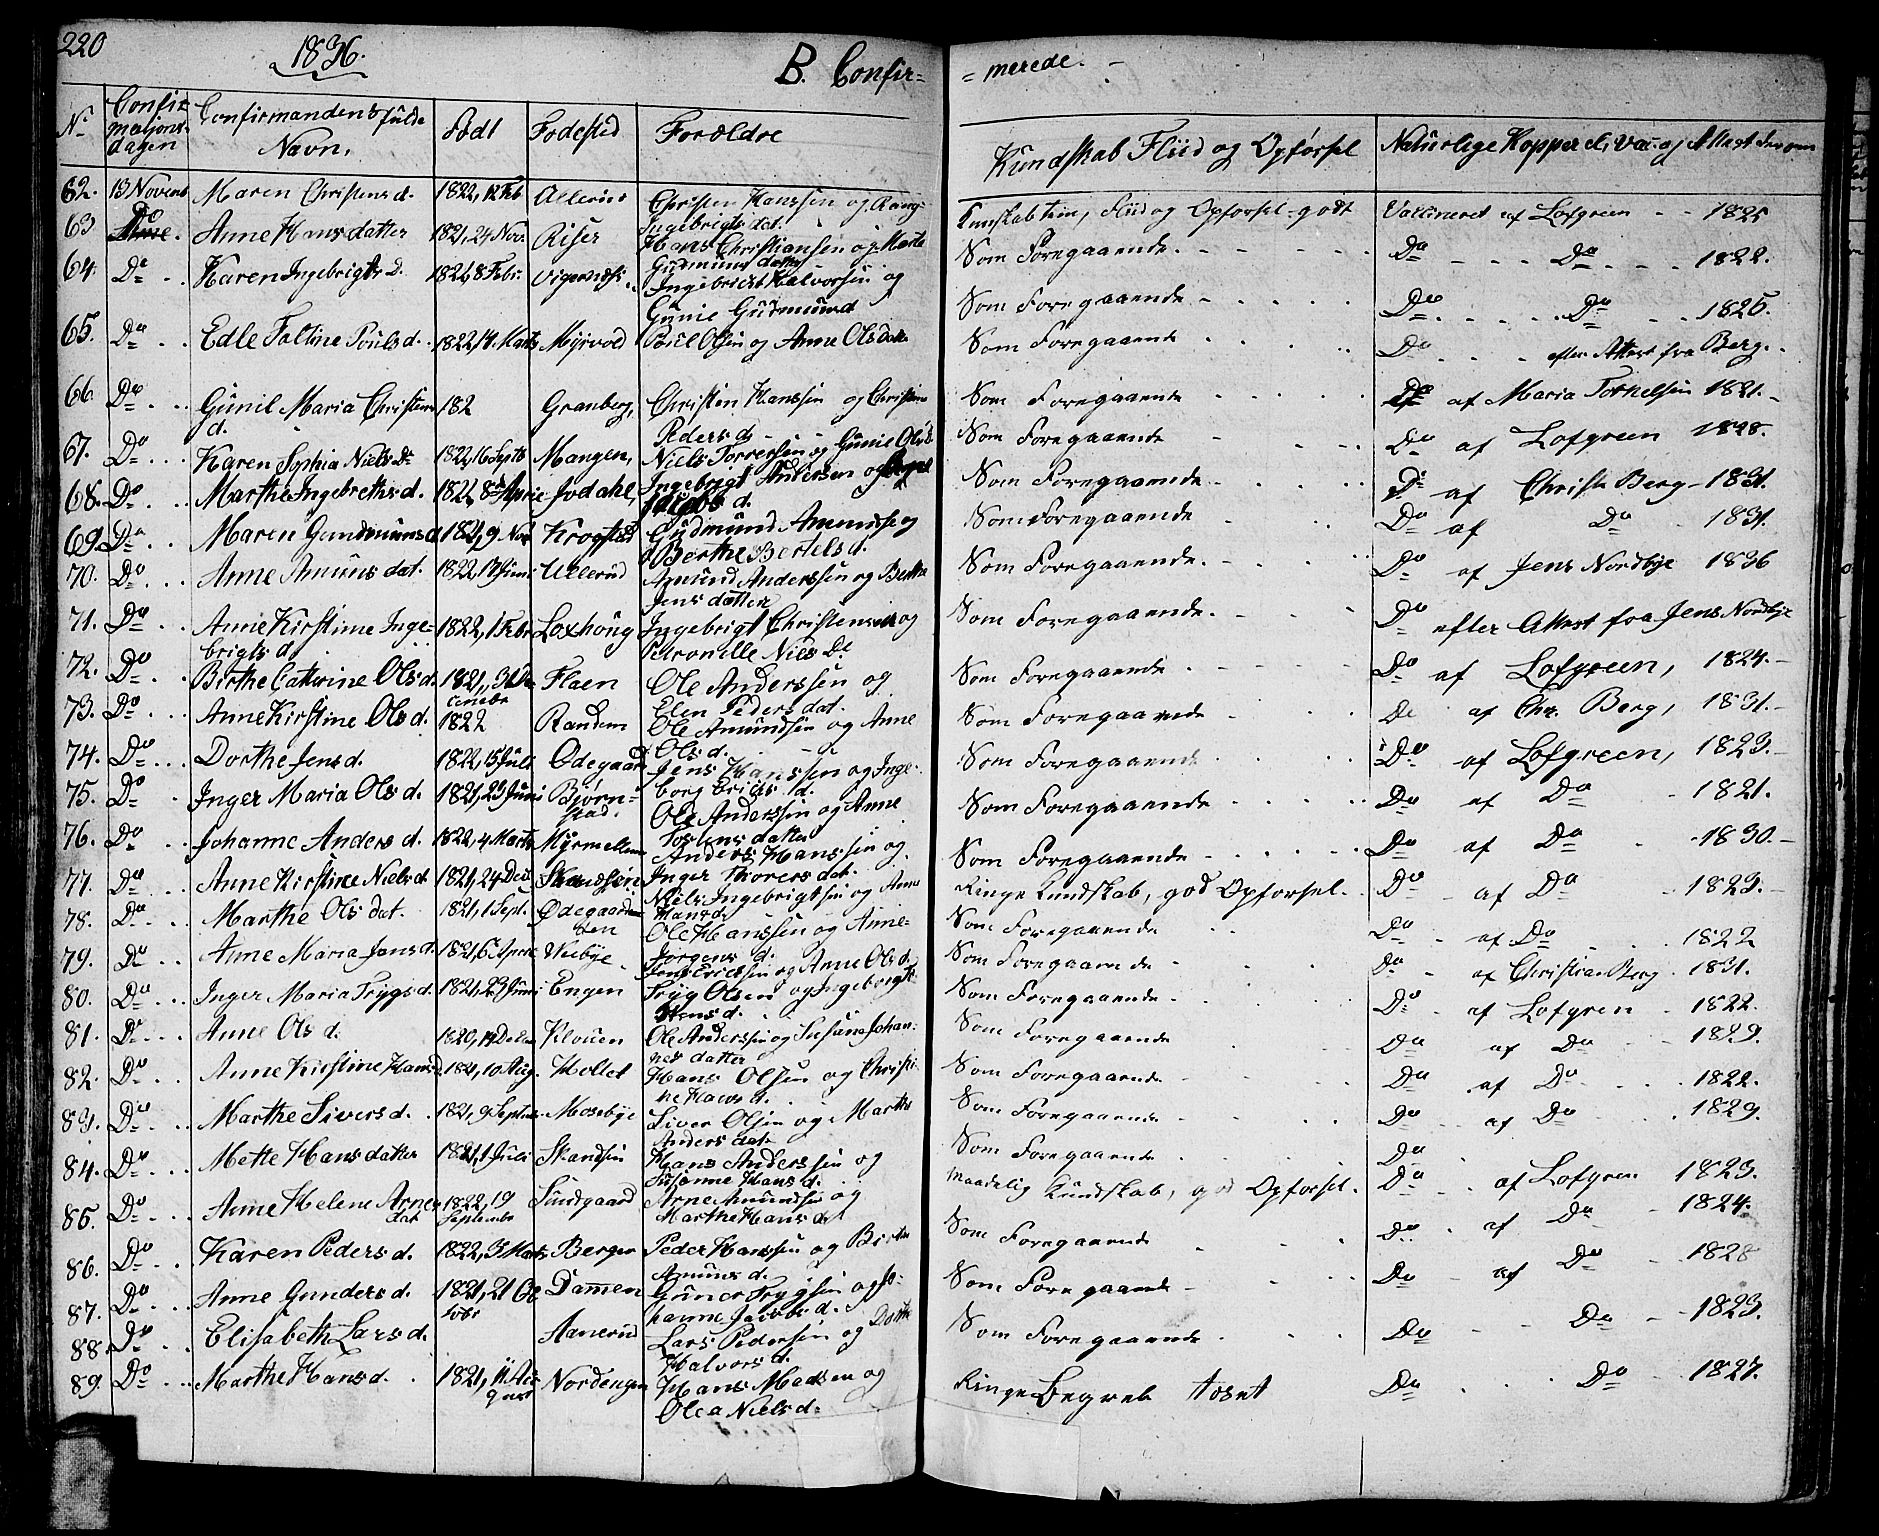 220
1836.
B. Confir=
= merede. -
No Confir masjons dagen Confirmandens fulde Navn, Födt Fodested Forældre Kundskab Fliid og Opförsel Naturlige Kopper el. Vac. og Attest derom
62. 13 Novemb Maren Christens d. 1822, 12 Feb Ullerud Christen Hanssen og Ingebrigts dat. Kunskab tem, Fliid og Opforsel godt Vaccineret af Lofgreen - - 1825
63 Do Anne Hans datter 1821, 24 Nov. Riser Hans Christiansen og Marte Gudmunds datter Som Foregaaende. Do Do 1822.
64. Do Karen Ingebrigts D. 182 8 Febr. Ingebrigt Halvorsen og Gunie Gudmunsd Som Foregaaende Do Do 1825.
65. Do Edle Paulsd. 1822, 14 Marts Myrvold Poul Olsen og Anne Ols datt Som Foregaaende Do efter Attest fra Berg.
66 Do Gunil Maria Christens d. 182 Granberg, Christen Hanssen og Christine Peders d. Som Foregaaende Do af Maria Torkelsen 1821.
67. Do Karen Sophia Niels D. 1822, 16 Septb Mangen, Niels Torressen og Gunie Ols d. Som Foregaaende Do af Lofgreen 1828.
68. Do Marthe Ingebreths d. 1822, 8 April Jodahl, Ingebrigt Andersen og d. Som Foregaaende Do af Christi Berg - 1831.
69. Do Maren Gundmunds d 1821, 9 Nov Krogstad Gudmund Amundse og Berthe Bertels d. Som Foregaaende Do af Do 1831.
70. Do Anne Amuns dat. 1822, 17 Juni Ullerud Amund Anderssen og Berthe Jens datter Som Foregaaende. Do af Jens Nordbye 1836
71. Do Anne Kirstine Inge= brigts d. 1822, 1 Febr Loxhoug Ingebrigt Christensen og Petronille Niels D. Som Foregaaende. Do efter Attest fra Jens Nordbye
72. Do Birthe Catterine Ols d. 1821, 31 De cembr Flaen Ole Anderssen og Elen Peders dat. Som Foregaaende. Do af Lofgreen, 1824.
73. Do Anne Kirstine Ols d. 1822 Randem Ole Amundsen og Anne Ols d. Som Foregaaende Do af Chr. Berg, 1831.
74. Do Dorthe Jens d. 1822, 15 Juli Odegaard Jens Hanssen og Inge= borg Erichs d. Som Foregaaende Do af Lofgreen, 1823.
75. Do Inger Maria Ols d. 1821, 23 Juni Björn= stad. Ole Anderssen og Anne Torsens datter Som Foregaaende Do af Do 1821.
76. Do Johanne Anders d. 1822, 4 Marts Anders Hanssen og Inger Thorers dat. Som Foregaaende Do af Do 1830.
77. Do Anne Kirstine Niels d. 1821, 24 Dec Skandsen Niels Ingebrigtsen og Anne Hansd. Ringe Kundskab, god Opforsel. Do af Do 1823.
78. Do Marthe Ols dat. 1821, 1 Sept. Ødegaarden Ole Hanssen og Anne Jorgens d. Som Foregaaende Do af Do 1822
79. Do Anne Maria Jens d. 1821, 6 April Weebye Jens Ericssen og Anne Ols d. Som Foregaaende Do af Christian Berg 1831.
80. Do Inger Maria Trygs d. 1821, 23 Juni Engen Tryg Olsen og Ingeborg Hens d. Som Foregaaende Do af Lofgren 1822.
81. Do Anne Ols d. 1820, 14 Dec Klouen Ole Anderssen og Susane Johan= nes datter Som Foregaaende Do af Do 1823.
82. Do Anne Kirstine Hans d. 1821, 10 Aug. Hollet Hans Olsen og Christi= ne Hans d. Som Foregaaende Do af Do 1822.
83. Do Marthe Sivers d. 1821, 9 Septem Mosebye Siver Olsen og Marthe Anders dat Som Foregaaende Do af Do 1829.
84. Do Mette Hans datter 1821, 1 Juli Skandsen Hans Anderssen og Susanne Hans d. Som Foregaaende Do af Lofgren 1823.
85. Do Anne Helene Arnes dat 1822, 19 Septembr Sundgaard Arne Amundsen og Marthe Hans d. Maadelig Kundskab, god Opforsel. Do af Do 1824.
86. Do Karen Peders d. 1822, 3 Marts Berger Peder Hanssen og Birte Amuns d. Som Foregaaende Do af Do 1828
87. Do Anne Gunders d. 1821, 21 Oc tobr Dammen Guner Trygsen og Jo= hanne Jacobs d. Som Foregaaende Do Do 1823.
88. Do Elisabeth Lars d. Aanerud Lars Pedersen og Dorthe Halvors d. Som Foregaaende
89. Do Marthe Hans d. 1821, 11 Au= gust Nordengen Hans Madsen og Olea Niels d. Ringe Begreb Do Do 1827.